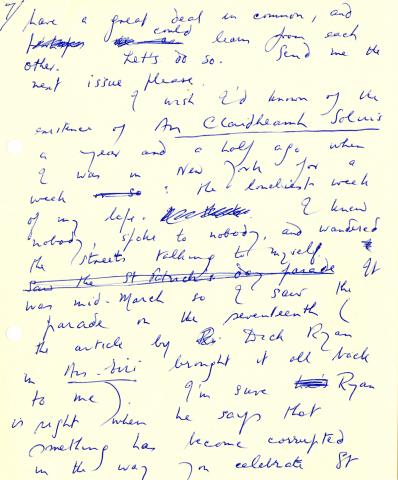 7/ have a great deal in common, and
perhaps could learn from each
other. Let's do so. Send me the
next issue please.
I wish I'd known of the
existence of An Claidheamh Soluis
a year and a half ago when
I was in New York for a
week : the loneliest week
of my life. I knew
nobody, spoke to nobody, and wandered
the streets talking to myself.
Saw the St Patrick's Day parade It
was mid-March so I saw the
parade on the seventeenth (
the article by Dick Ryan
in An brought it all back
to me). I'm sure Ryan
is right when he says that
something has become corrupted
in the way you celebrate St